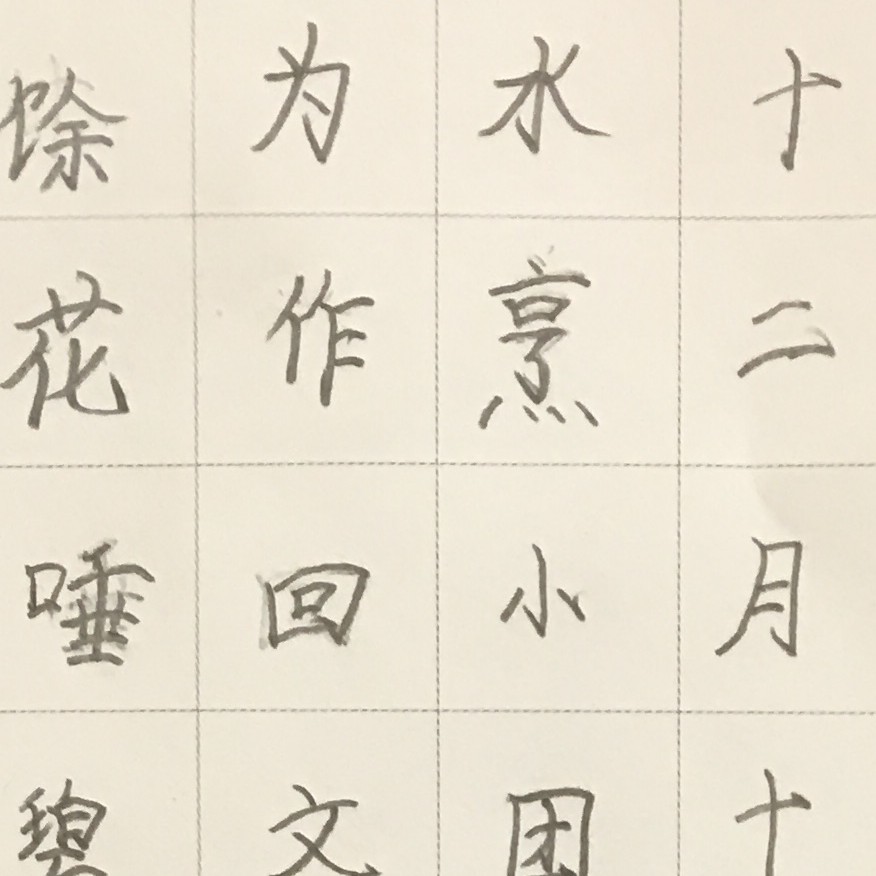 十二月十
水烹小团
为作回文
馀花唾碧